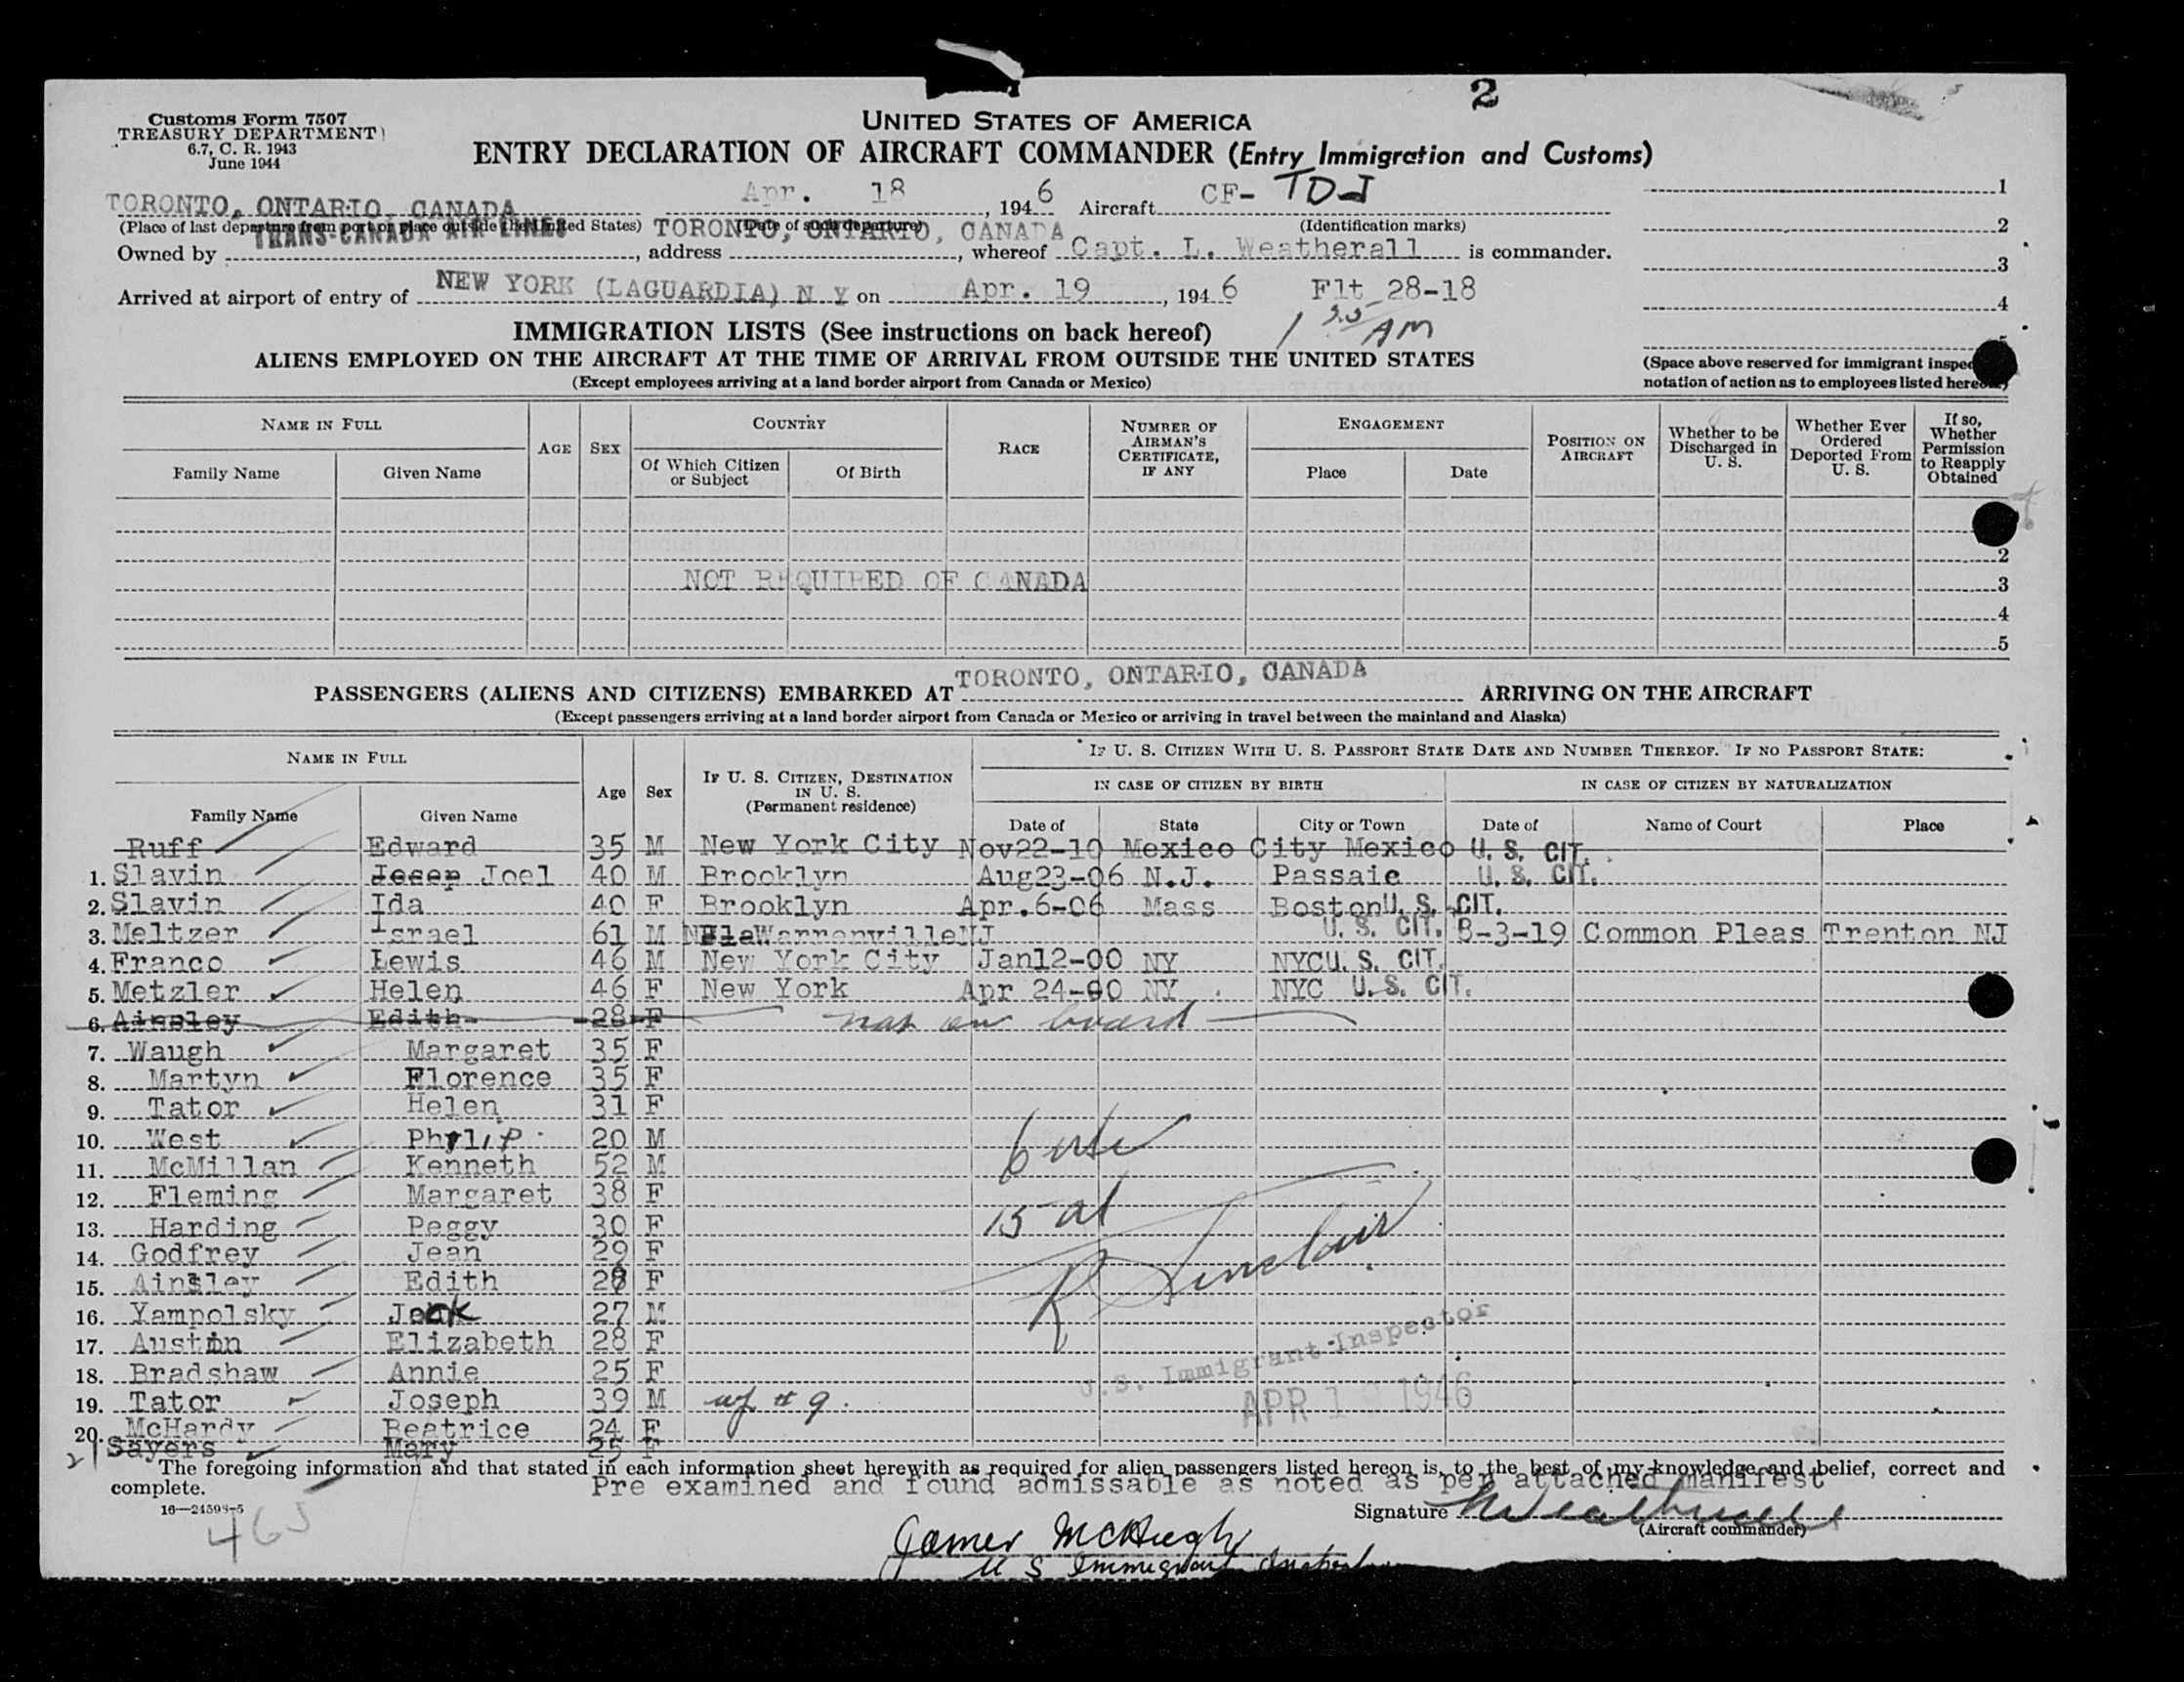 2
Customs Form 7507
TREASURY DEPARTMENT
6.7, C. R. 1943
June 1944
UNITED STATES OF AMERICA
ENTRY DECLARATION OF AIRCRAFT COMMANDER (Entry Immigration and Customs)
TORONTO, ONTARIO, CANADA Apr. 18, 1946 Aircraft CF- TDJ
(Place of last departure from port or place outside the United States) (Date of such departure) (Identification marks)
Owned by TRANS-CANADA AIR LINES, address TORONTO, ONTARIO, CANADA, whereof Capt. L. Weatherall is commander.
Arrived at airport of entry of NEW YORK (LAGUARDIA) N Y on Apr. 19, 1946 Flt 28-18
1 35 AM
1
2
3
4
(Space above reserved for immigrant
notation of action as to employees listed
IMMIGRATION LISTS (See instructions on back hereof)
ALIENS EMPLOYED ON THE AIRCRAFT AT THE TIME OF ARRIVAL FROM OUTSIDE THE UNITED STATES
(Except employees arriving at a land border airport from Canada or Mexico)
NAME IN FULL AGE SEX COUNTRY RACE NUMBER OF AIRMAN'S CERTIFICATE, IF ANY ENGAGEMENT POSITION ON AIRCRAFT Whether to be Discharged in U. S. Whether Ever Ordered Deported From U. S. If so, Whether Permission to Reapply Obtained
Family Name Given Name Of Which Citizen or Subject Of Birth Place Date
2
NOT REQUIRED OF CANADA 3
4
5
PASSENGERS (ALIENS AND CITIZENS) EMBARKED AT TORONTO, ONTARIO, CANADA ARRIVING ON THE AIRCRAFT
(Except passengers arriving at a land border airport from Canada or Mexico or arriving in travel between the mainland and Alaska)
NAME IN FULL Age Sex IF U. S. CITIZEN, DESTINATION IN U. S. (Permanent residence) IF U. S. CITIZEN WITH U. S. PASSPORT STATE DATE AND NUMBER THEREOF. IF NO PASSPORT STATE:
IN CASE OF CITIZEN BY BIRTH IN CASE OF CITIZEN BY NATURALIZATION
Family Name Given Name Date of State City or Town Date of Name of Court Place
Ruff Edward 35 M New York City Nov22-10 Mexico City Mexico U. S. CIT.
1. Slavin Joel 40 M Brooklyn Aug23-06 N.J. Passaic U. S. CIT.
2. Slavin Ida 40 F Brooklyn Apr.6-06 Mass Boston U. S. CIT.
3. Meltzer Israel 61 M WarrenvilleNJ U. S. CIT. 8-3-19 Common Pleas Trenton NJ
4. Franco Lewis 46 M New York City Jan12-00 NY NYC U. S. CIT.
5. Metzler Helen 46 F New York Apr 24-00 NY NYC U. S. CIT.
6. Ainsley Edith 28 F not on board
7. Waugh Margaret 35 F
8. Martyn Florence 35 F
9. Tator Helen 31 F
10. West Phylip 20 M
11. McMillan Kenneth 52 M
12. Fleming Margaret 38 F
13. Harding Peggy 30 F
14. Godfrey Jean 29 F
15. Ainsley Edith 28 F
16. Yampolsky Jack 27 M
17. Austin Elizabeth 28 F
18. Bradshaw Annie 25 F
19. Tator Joseph 39 M wf # 9.
20. McHardy Beatrice 24 F
21 Sayers Mary 25 F
6 usc
15 al
R Sinclair
U.S. Immigrant Inspector
APR 19 1946
The foregoing information and that stated in each information sheet herewith as required for alien passengers listed hereon is, to the best of my knowledge and belief, correct and
complete. Pre examined and found admissable as noted as per attached manifest
16—24598-5
465
Signature Weatherall
(Aircraft commander)
James McHugh
U S Immigrant Inspector